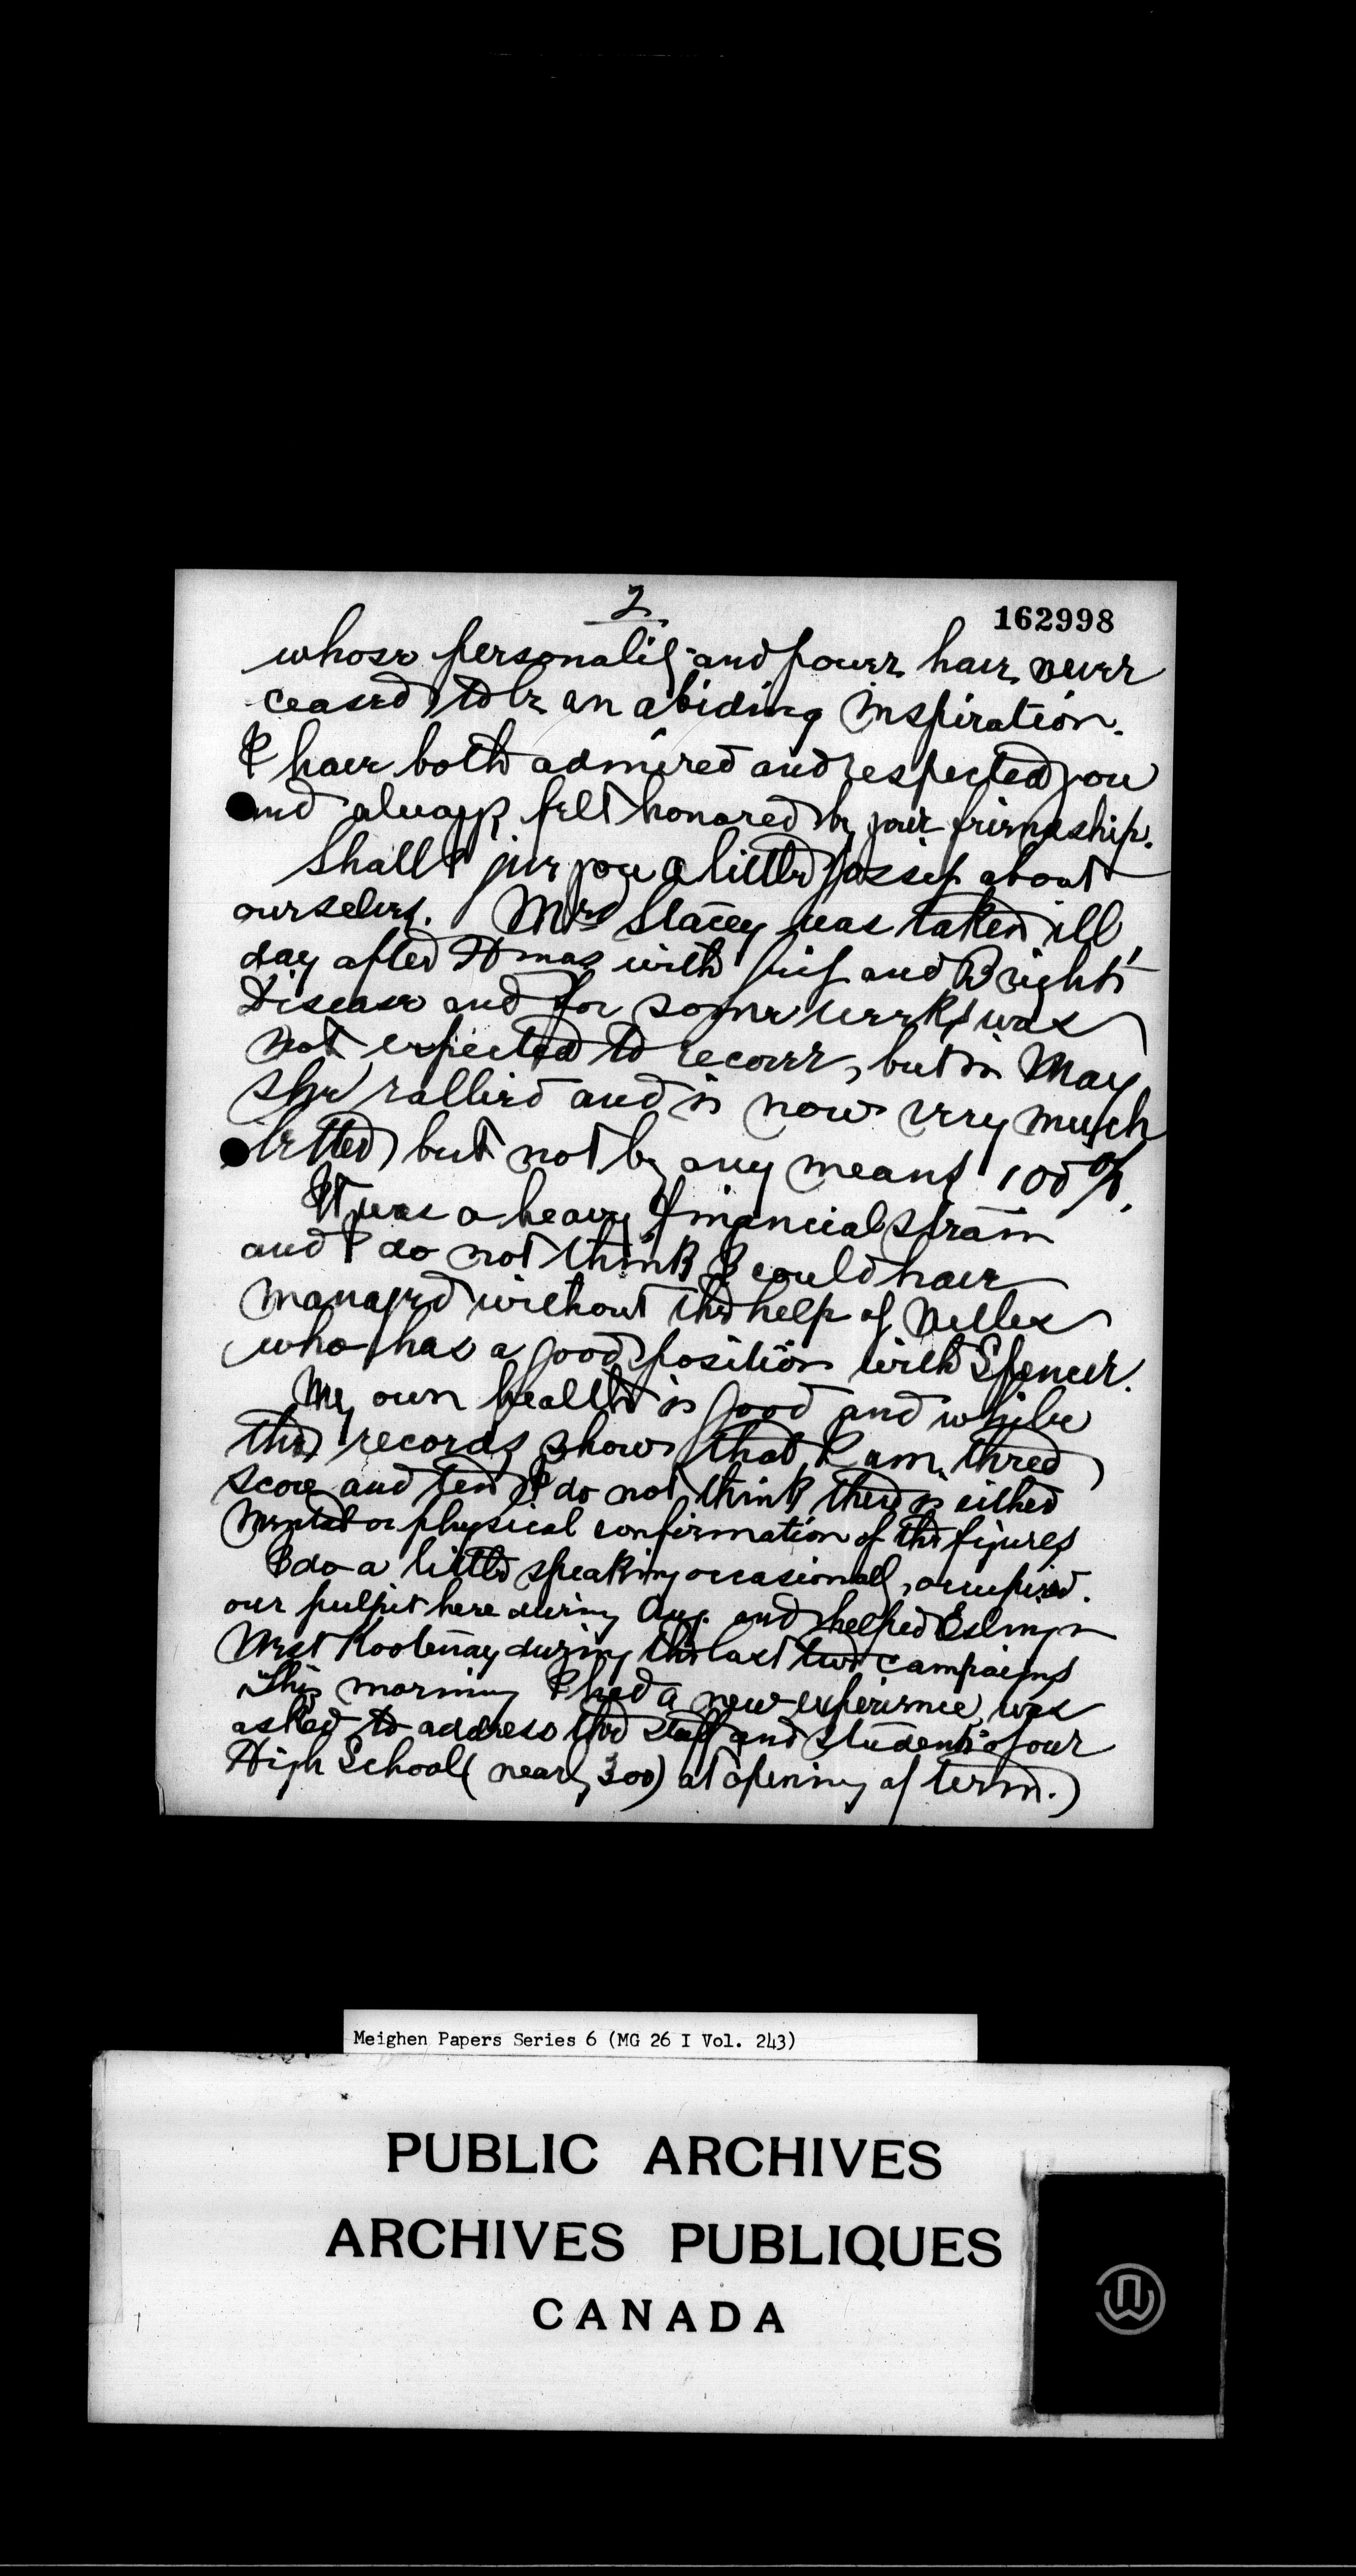 2
162998
whose personality and power have never
ceased to be an abiding inspiration.
I have both admired and respected you
and always felt honored by your friendship.
Shall I give you a little gossip about
ourselves. Mrs Stacey was taken ill
day after Xmas with grip and Bright's
Disease and for some weeks was
not expected to recover, but in May
she rallied and is now very much
better but not by any means 100%.
It was a heavy financial strain
and I do not think I could have
managed without the help of
who has a good position with Spencer.
My own health is good and while
the records show that I am three
score and ten I do not think there is either
mental or physical confirmation of the figures
I do a little speaking occasionally, occupied
our pulpit here during Aug. and helped Esling in
West Kootenay during the last two campaigns
This morning I had a new experience, was
asked to address the staff and students of our
High School (nearly 300) at opening of term.
Meighen Papers Series 6 (MG 26 I Vol. 243)
PUBLIC ARCHIVES
ARCHIVES PUBLIQUES
CANADA